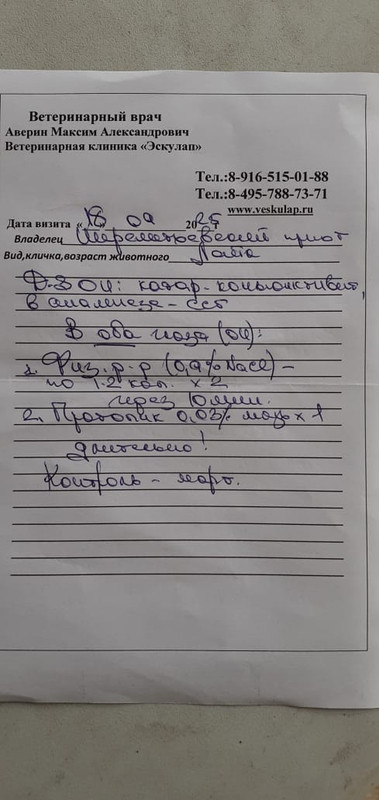 Ветеринарный врач
Аверин Максим Александрович
Ветеринарная клиника «Эскулап»
Тел.:8-916-515-01-88
Тел.:8-495-788-73-71
www.veskulap.ru
Дата визита «18» 09 2025
Владелец Шереметьевский приют
Вид,кличка,возраст животного
Д-з OU: катар. конъюнктивит,
в анамнезе - ССГ
В оба глаза (OU):
1. Физ. р-р (0,9% NaCl) -
по 1-2 кап. x 2
через 10 мин.
2. Протопик 0,03% мазь x 1
длительно!
Контроль - март.